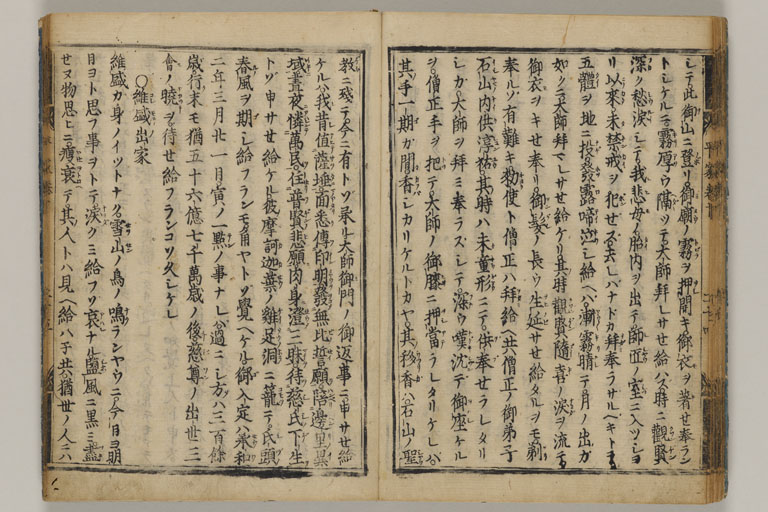 シテ此御山ニ登リ御廟ノ霧ヲ押開キ御衣ヲ着セ奉ラン
トシケルニ霧厚ウ隔ツテ大師拝レサセ給ハズ時ニ觀賢
深ク愁涙シテ我悲母ノ胎内ヲ出テ師匠ノ室ニ入ツシヨ
リ以來未禁戒ヲ犯セズ去レハナドカ拝奉ラサルヘキトテ
五體ヲ地ニ投發露啼泣シ給ヘハ漸霧晴テ月ノ出カ
如クニテ大師拝マレサセ給ケリ其時觀賢隨喜ノ涙ヲ流テ
御衣ヲキセ奉リ御髪ノ長ウ生延サセ給タルヲモ剃
奉ルソ有難キ勅使ト僧正ハ拝給ヘ共僧正ノ御弟子
石山内供淳祐其時ハ未童形ニテ供奉セラレタリ
シカ大師ヲ拝ミ奉ラズシテ深ウ嘆沈テ御座ケル
ヲ僧正手ヲ把テ大師ノ御膝ニ押當ラレタリケレハ
其手一期カ間香シカリケルトカヤ其移香ハ石山ノ聖
教ニ殘テ今ニ有トソ承ル大師御門ノ御返事ニ申サセ給
ケルハ我昔值薩埵面悉傳印明發無比誓願陪邊里異
域晝夜憐萬民住普賢悲願肉身澄三昧待慈氏下生
トゾ申サセ給ケル彼摩訶迦葉ノ雞足洞ニ籠テ氏頭
春風ヲ期シ給フランモ角ヤトソ覺ヘケル御入定ハ承和
二年三月廿一日寅ノ一點ノ事ナレハ過ニシ方ハ三百餘
歳行末モ猶五十六億七千萬歳ノ後慈尊ノ出世三
會ノ曉ヲ待セ給フランコソ久シケレ
〇維盛出家
維盛カ身ノイツトナク雪山ノ鳥ノ鳴ランヤウニ今日ヨ明
日ヨト思フ事ヲトテ涙クミ給フソ哀ナル鹽風ニ黒ミ盡
セヌ物思ヒニ瘦衰テ其人トハ見ヘ給ハ子共猶世ノ人ニハ